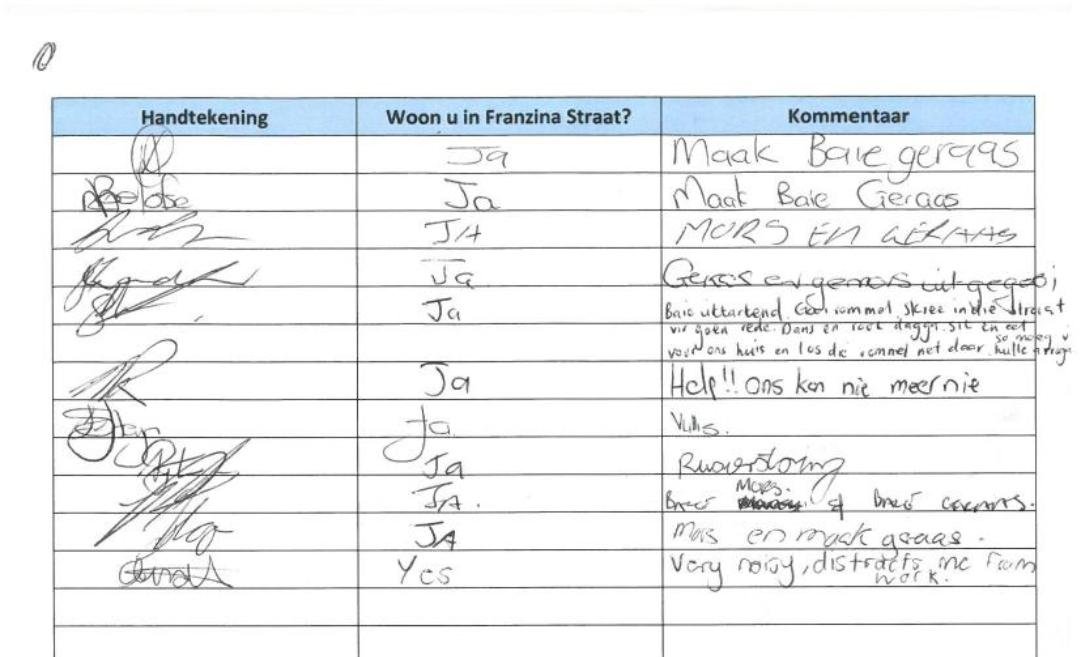 Handtekening Woon u in Franzina Straat? Kommentaar
Ja Maak Baie geraas
Ja Maak Baie Geraas
JA MORS EN GERAAS
Ja Geraas en gemors uitgegooi
Ja Baie uittartend. Gooi rommel, skree in die straat
vir geen rede. Dans en rook dagga. Sit en eet
voor ons huis en los die rommel net daar. hulle
Ja Help!! Ons kan nie meer nie
Ja Vullis.
Ja Rusverstoring
JA. Mors.
JA Mors en maak geraas.
Yes Very noisy, distracts me from
work.